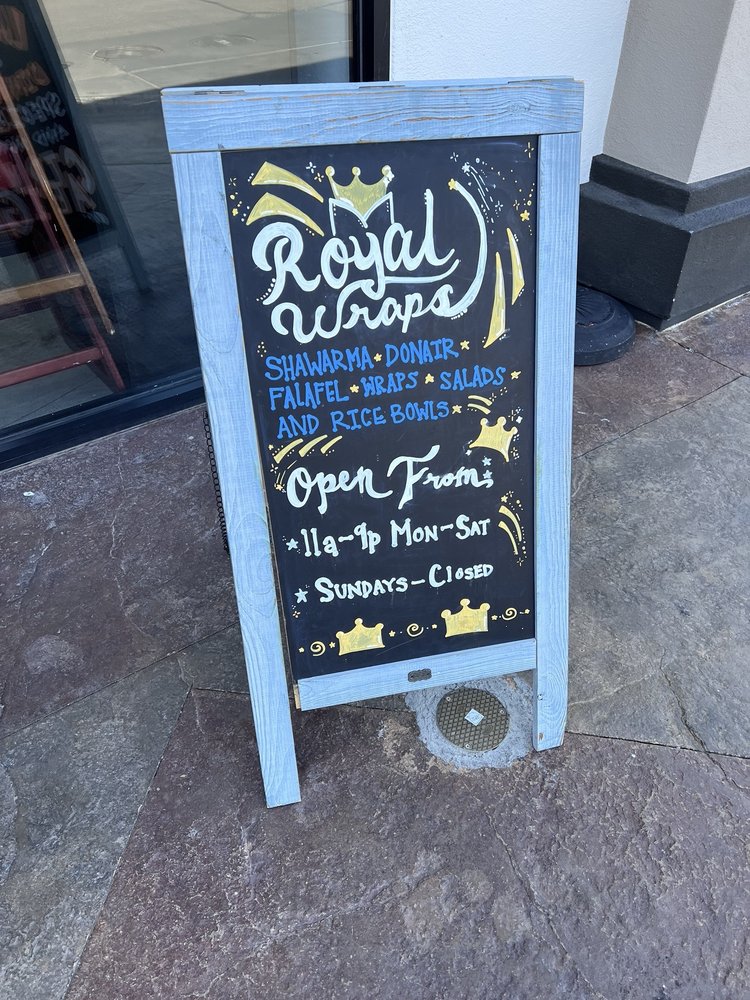 Royal
Wraps
SHAWARMA DONAIR
FALAFEL WRAPS SALADS
AND RICE BOWLS
Open From:
11a-9p Mon-Sat
Sundays-Closed